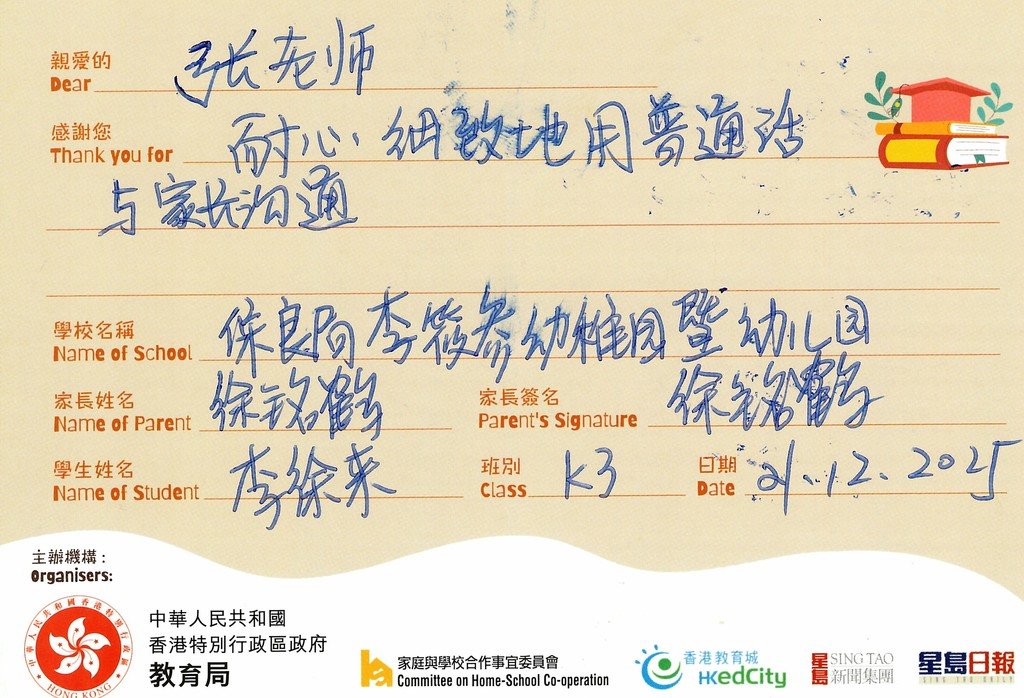 親愛的
Dear 张老师
感謝您
Thank you for 耐心、细致地用普通话
与家长沟通
學校名稱
Name of School 保良局李筱參幼稚园暨幼儿园
家長姓名
Name of Parent 徐铭鹤
家長簽名
Parent's Signature 徐铭鹤
學生姓名
Name of Student 李徐来
班別
Class K3
日期
Date 21.12.2025
主辦機構:
Organisers:
中華人民共和國香港特別行政區
HONG KONG
中華人民共和國
香港特別行政區政府
教育局
家庭與學校合作事宜委員會
Committee on Home-School Co-operation
香港教育城
HKedCity
星島 SING TAO
新聞集團
星島日報
SING TAO DAILY